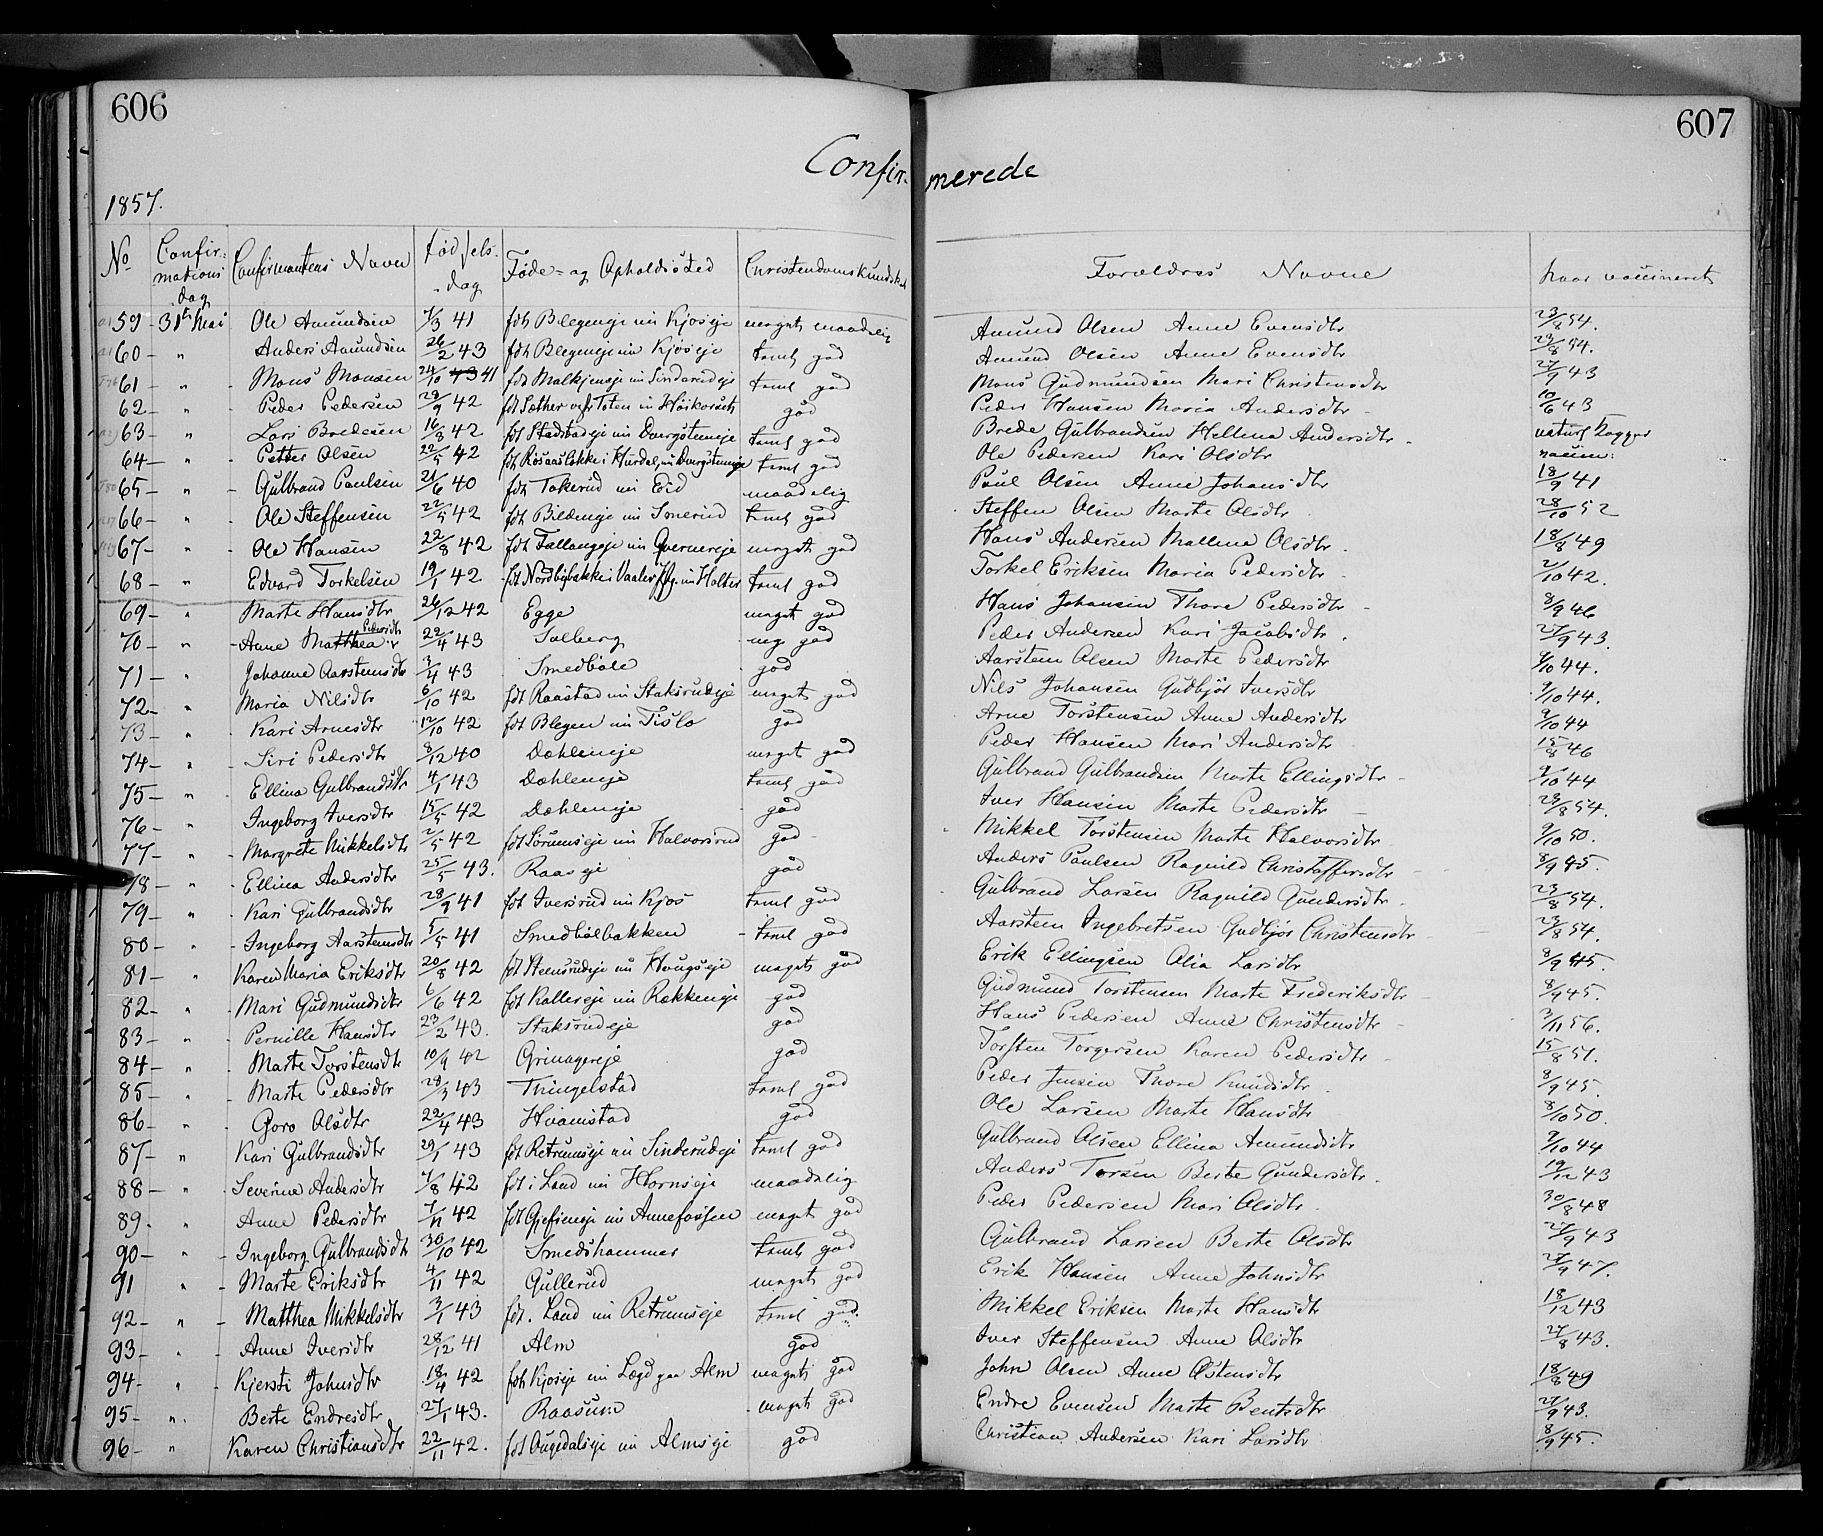 606
607
Confirmerede
1857.
No Confirmations dag Confirmantens Navn Fødsels dag Føde- og Opholdssted Christendomskundskab Forældres Navne naar vaccineret
59 - 31te Mai Ole Amundsen 7/3 41 fdt Blegeneje nu Kjøseje meget maadelig Amund Olsen Anne Evensdtr 23/8 54.
60 - " Anders Amundsen 26/2 43 fdt Blegeneje nu Kjøseje taml god Amund Olsen Anne Evensdtr 23/8 54.
61 - " Mons Monsen 24/10 43 41 fdt Malkjenseje nu Sinderudeje taml god Mons Gudmundsen Mari Christensdtr 27/9 43
62 - " Peder Pedersen 29/9 42 fdt Sæther vestre Toten nu Høikorset god Peder Hansen Maria Andersdtr 10/6 43
63 - " Lars Bredesen 16/8 42 fdt Stadstadeje nu Dvergsteneje taml god Brede Gulbrandsen Hellena Andersdtr naturl Kopper
64 - " Petter Olsen 22/5 42 fdt Rosaasløkke i Hurdal, nu Dvergsteneje taml god Ole Pedersen Kari Olsdtr vaccin:
65 - " Gulbrand Paulsen 21/6 40 fdt Tokerud nu Eid maadelig Paul Olsen Anne Johansdtr 18/9 41
66 - " Ole Steffensen 22/5 42 fdt Bildeneje nu Smerud taml god Steffen Olsen Marte Olsdtr 28/10 52
67 - " Ole Hansen 22/8 42 fdt Fallangeje nu Qvernereje meget god Hans Andersen Mallena Olsdtr 18/8 49
68 - " Edvard Torkelsen 19/1 42 fdt Nordbybakke i Vaaler Pfg. nu Holter taml god Torkel Eriksen Maria Pedersdtr 2/10 42.
69 - " Marte Hansdtr 26/12 42 Egge meget god Hans Johansen Thore Pedersdtr 8/9 46
70 - " Anne Matthea Pedersdtr 22/4 43 Solberg meg god Peder Andersen Kari Jacobsdtr 27/9 43.
71 - " Johanne Aarstensdtr 3/4 43 Smedbøle god Aarsten Olsen Marte Pedersdtr 9/10 44.
72 - " Maria Nilsdtr 6/10 42 fdt Raastad nu Staksrudeje meget god Nils Johansen Gudbjør Iversdtr 9/10 44.
73 - " Kari Arnesdtr 12/10 42 fdt Blegen nu Tislo god Arne Torstensen Anne Andersdtr 9/10 44
74 - " Siri Pedersdtr 8/12 40 Dæhleneje meget god Peder Hansen Mari Andersdtr 15/8 46
75 - " Ellina Gulbrandsdtr 4/1 43 Dæhleneje taml god Gulbrand Gulbrandsen Marte Ellingsdtr 9/10 44
76 - " Ingeborg Iversdtr 15/5 42 Dæhleneje god Iver Hansen Marte Pedersdtr 23/8 54.
77 - " Margrete Mikkelsdtr 2/5 42 fdt Sørumseje nu Halvorsrud god Mikkel Torstensen Marte Halvorsdtr 9/10 50.
78 - " Ellina Andersdtr 25/5 43. Raaseje god Anders Paulsen Ragnild Christoffersdtr 8/9 45.
79 - " Kari Gulbrandsdtr 28/9 41 fdt Iversrud nu Kjøs taml god Gulbrand Larsen Ragnild Gundersdtr 23/8 54.
80 - " Ingeborg Aarstensdtr 5/5 41 Smedbølbakken taml god Aarsten Ingebretsen Gudbjør Christensdtr 23/8 54.
81 - " Karen Maria Eriksdtr 20/8 42 fdt Steensrudeje nu Hougseje meget god Erik Ellingsen Alia Larsdtr 8/9 45.
82 - " Mari Gudmundsdtr 6/6 42 fdt Kallereje nu Rækkeneje god Gudmund Torstensen Marte Frederiksdtr 8/9 45.
83 - " Pernille Hansdtr 23/2 43. Staksrudeje god Hans Pedersen Anne Christensdtr 3/11 56.
84 - " Marte Torstensdtr 10/9 42 Grinagereje god Torsten Torgersen Karen Pedersdtr 15/8 51.
85 - " Marte Pedersdtr 28/3 43 Thingelstad taml god Peder Jensen Thore Knudsdtr 8/9 45.
86 - " Goro Olsdtr 22/4 43 Hvamstad god Ole Larsen Marte Hansdtr 8/10 50.
87 - " Kari Gulbrandsdtr 29/1 43 fdt Retrumseje nu Sinderudeje taml god Gulbrand Olsen Ellina Amundsdtr 9/10 44
88 - " Severine Andersdtr 7/8 42 fdt i Land nu Hornseje maadelig Anders Torsen Berte Gundersdtr 19/12 43
89 - " Anne Pedersdtr 7/11 42 fdt Gjefseneje nu Annefossen meget god Peder Pedersen Mari Olsdtr 30/8 48
90 - " Ingeborg Gulbrandsdtr 30/10 42 Smedshammer taml god Gulbrand Larsen Berte Olsdtr 27/9 43
91 " Marte Eriksdtr 4/11 42 Gullerud meget god Erik Hansen Anne Johnsdtr 27/9 47.
92 - " Matthea Mikkelsdtr 3/1 43 fdt. Land nu Retrumseje taml god Mikkel Eriksen Marte Hansdtr 18/12 43
93 - " Anne Iversdtr 28/12 41 Alm god Iver Steffensen Anne Olsdtr 27/8 43.
94 - " Kjersti Johnsdtr 18/4 42 fdt Kjøseje nu Lægd paa Alm meget god John Olsen Anne Østensdtr 18/8 49
95 - " Berte Endresdtr 27/1 43. Raasum meget god Endre Evensen Marte Bentsdtr 27/9 43.
96 - " Karen Christiansdtr 22/11 42. fdt Augedalseje nu Almseje god Christian Andersen Kari Larsdtr 8/9 45.